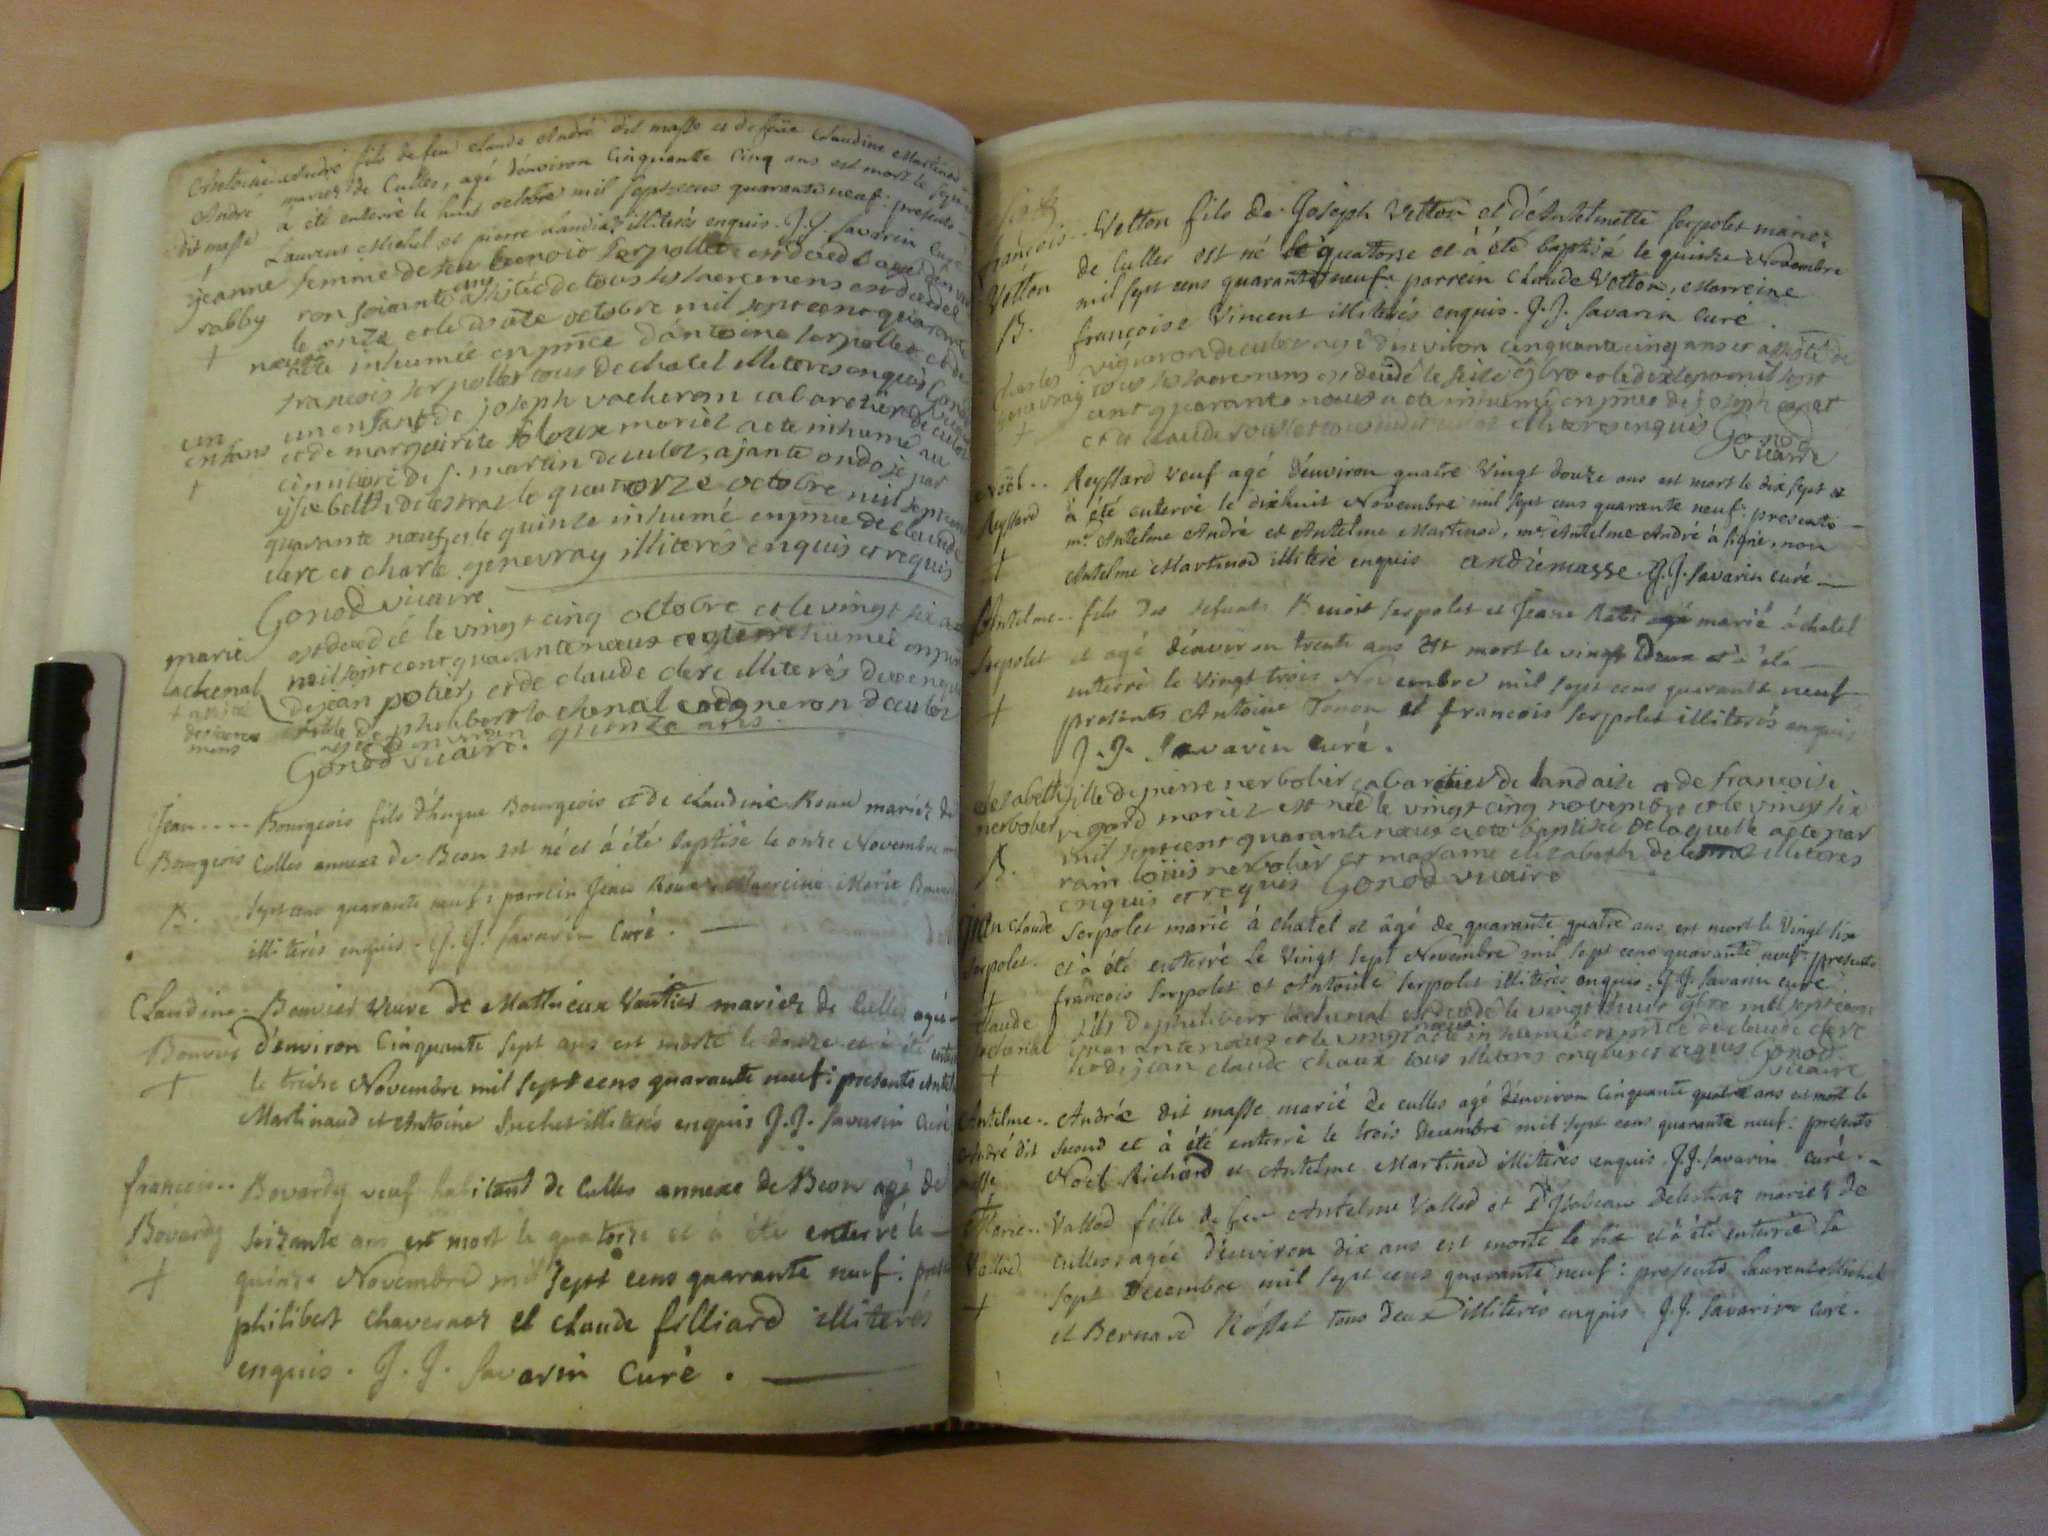 Antoine André fils de feu Claude André dit masse et de feüe Claudine Martinod
André mariez de Culles, agé d'environ Cinquante Cinq ans est mort le sept
dit masse à été enterré le huit octobre mil sept cens quarante neuf: presents
Laurent Michel et pierre Landiaz illiterés enquis. J. J. Savarin Curé
jeanne femme de feu benoit Serpollet
rabby ron soixante ans assistée de tous les sacremens
+ le onze et le doze octobre mil sept cent quarante
neuf inhumée en pnce d'antoine Serpollet et de
francois Serpollet tous de chatel illiteres enquis Gonod
un un enfant de joseph vacheron cabaretier de culoz
enfans et de marguirite mariés a ete inhumé au
+ cimitiere de s. martin de culoz, ajant ondojé par
ysabelth delestraz le quatorze octobre mil sept cent
quarante neuf, et le quinze inhumé en pnce de claude
clerc et charle genevray illiteres enquis et requis
Gonod vicaire
marie est decedée le vingt cinq octobre et le vingt six
lachenal mil sept cent quarante neuf inhumée en pnce
+ assisté de jean potier, et de claude clerc illiterés
des sacre fille de philibert lachenal vigneron de culoz
mens agée d'environ quinze ans.
Gonod vicaire.
Jean.... Bourgeois fils d'hugue Bourgeois et de Claudine Roux mariez de
Bourgeois Culles annexe de Beon est né et à été baptisé le onze Novembre mil
B. sept cens quarante neuf: parrein Jean Roux, Marreine Marie
illiterés enquis. J. J. Savarin Curé.
Claudine.. Bouvier veuve de Mathieux Vautier mariez de Culles agée
Bouvier d'environ Cinquante sept ans est morte le douze et à été enterrée
+ le treize Novembre mil sept cens quarante neuf: presents Antelme
Martinaud et Antoine Suchet illiterés enquis J. J. Savarin Curé
francois.. Bovardy veuf habitant de Culles annexe de Beon agé de
Bovardy soixante ans est mort le quatorze et à été enterré le
+ quinze Novembre mil sept cens quarante neuf: presents
philibert chavernoz et Claude filliard illiterés
enquis. J. J. Savarin Curé.
françois.. Vetton fils de Joseph Vetton et d'Antelmette Serpolet mariez
Vetton de Culles est né le quatorze et à été baptisé le quinze Novembre
B. mil sept cens quarante neuf: parrein Claude Vetton, Marreine
françoise Vincent illiterés enquis. J. J. Savarin Curé.
charles vigneron de culoz agé d'environ cinquante cinq ans et assisté de
genevray tous les sacremens est decedé le seize 9bre et le dix sept mil sept
+ cent quarante neuf a ete inhumé en pnce de joseph
et de claude illiteres enquis Gonod
vicaire
Noël.. Reyssard veuf agé d'environ quatre vingt douze ans est mort le dix sept et
Reyssard à été enterré le dixhuit Novembre mil sept cens quarante neuf: presents
+ mr. Antelme André et Antelme Martinod, mr. Antelme André à signé, non
Antelme Martinod illiteré enquis andrémasse J. J. Savarin curé
Antelme.. fils des defunts Benoit Serpolet et Jeane Rabi marié à chatel
Serpolet et agé d'environ trente ans est mort le vingt deux et à été
+ enterré le vingt trois Novembre mil sept cens quarante neuf
presents Antoine Tonon et francois Serpolet illiterés enquis
J. J. Savarin Curé.
elesabeth fille de pierre nerbolier cabaretier de landaise et de francoise
nerbolier vigord mariez est née le vingt cinq novembre et le vingt six
B. mil sept cent quarante neuf a eté baptisée de laquelle a ete par
rain loüis nerbolier et maraine elizabeth delestraz illiteres
enquis et requis Gonod vicaire
jean Claude Serpolet marié à chatel et âgé de quarante quatre ans est mort le vingt six
Serpolet. et à été enterré le vingt sept Novembre mil sept cens quarante neuf: presents
+ francois Serpolet et Antoine Serpolet illiterés enquis. J. J. Savarin curé
claude fils de philibert lachenal est decedé le vingt huit 9bre mil sept cent
lachenal quarante neuf et le vingt neuf a ete inhumé en pnce de claude clerc
+ jean claude chaux tous illiteres enquis et requis Gonod
vicaire
Antelme.. André dit masse marié de culles agé d'environ Cinquante quatre ans est mort le
André dit second et à été enterré le trois decembre mil sept cens quarante neuf: presents
masse Noël Richard et Antelme Martinod illiterés enquis. J. J. Savarin curé.
+
Marie.. Vallod fille de feu Antelme Vallod et d'Ysabeau Delestraz mariez de
Vallod culles agée d'environ dix ans est morte le six et à été enterrée le
+ sept decembre mil sept cens quarante neuf: presents Laurent Michel
et Bernard Rosset tous deux illiterés enquis J. J. Savarin curé.